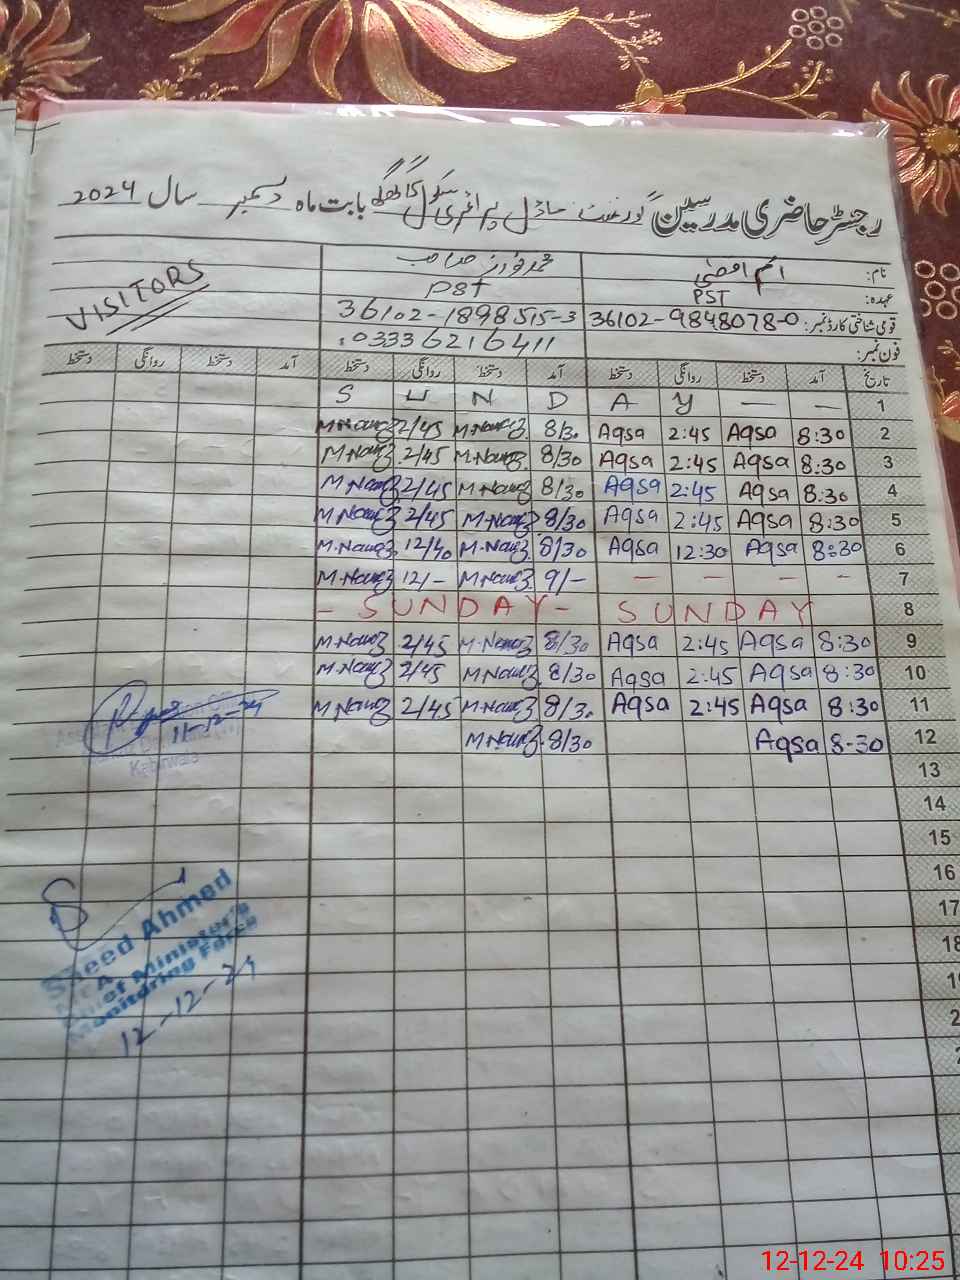 رجسٹر حاضری مدرسین گورنمنٹ ماڈل پرائمری سکول بابت ماہ دسمبر سال 2024
نام: ام اقصیٰ محمد نواز صاحب VISITORS
عہدہ: PST PST
قومی شناختی کارڈ نمبر: 36102-9848078-0 36102-1898515-3
فون نمبر: 03336216411
تاریخ آمد دستخط روانگی دستخط آمد دستخط روانگی دستخط آمد روانگی دستخط
S U N D A Y — — 1
M.Nawaz 2/45 M.Nawaz 8/30 Aqsa 2:45 Aqsa 8:30 2
M.Nawaz 2/45 M.Nawaz 8/30 Aqsa 2:45 Aqsa 8:30 3
M.Nawaz 2/45 M.Nawaz 8/30 Aqsa 2:45 Aqsa 8:30 4
M.Nawaz 2/45 M.Nawaz 8/30 Aqsa 2:45 Aqsa 8:30 5
M.Nawaz 12/40 M.Nawaz 8/30 Aqsa 12:30 Aqsa 8:30 6
M.Nawaz 12/- M.Nawaz 9/- — — — — 7
- SUNDAY - SUNDAY 8
M.Nawaz 2/45 M.Nawaz 8/30 Aqsa 2:45 Aqsa 8:30 9
M.Nawaz 2/45 M.Nawaz 8/30 Aqsa 2:45 Aqsa 8:30 10
M.Nawaz 2/45 M.Nawaz 8/30 Aqsa 2:45 Aqsa 8:30 11
M.Nawaz 8/30 Aqsa 8-30 12
11-12-24
Kabirwala
13
14
15
16
17
18
Saeed Ahmed
MEA
Chief Minister's
Monitoring Force
12-12-24
12-12-24 10:25